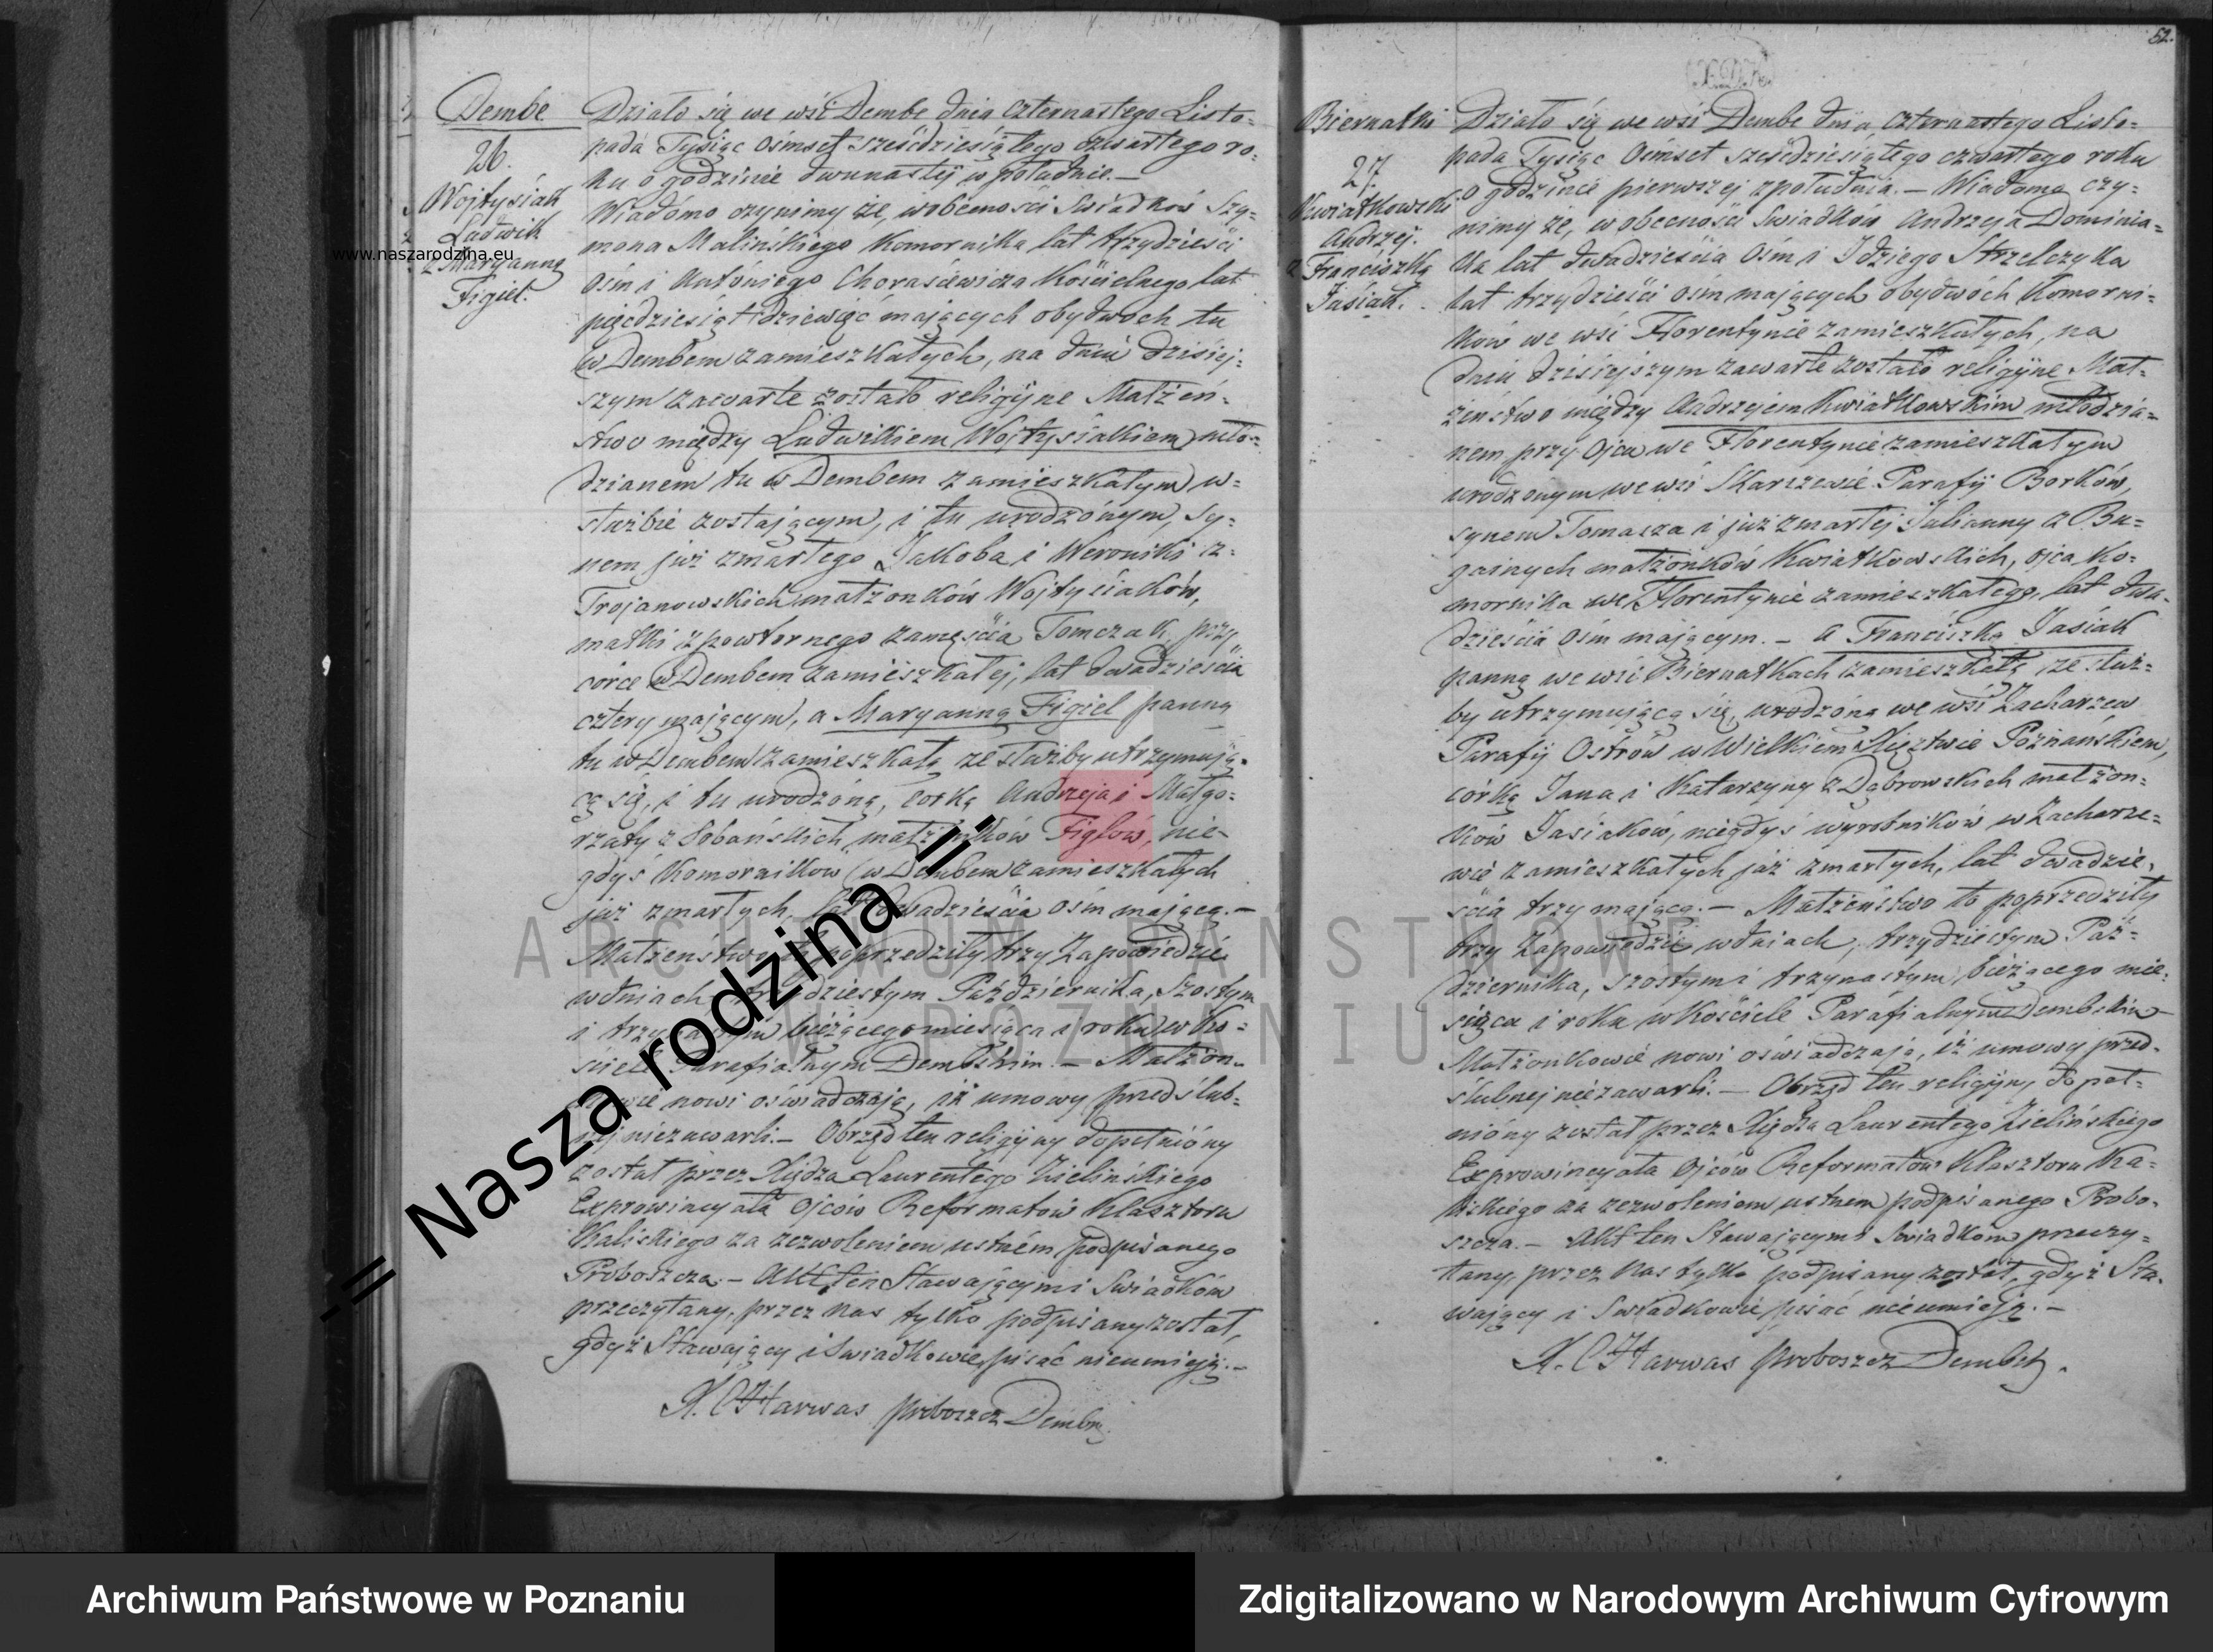 52.
Dembe
26.
Wojtysiak
Ludwik
z Maryanną
Figiel.
Działo się we wsi Dembe dnia czternastego Listo-
pada Tysiąc Ośmset sześćdziesiątego czwartego ro-
ku o godzinie dwunastej w południe. —
Wiadomo czynimy że, w obecności Świadków Szy-
mona Malińskiego Komornika lat trzydzieści
Ośm i Antoniego Chorasiewicza Kościelnego lat
pięćdziesiąt dziewięć mających obydwoch tu
w Dembem zamieszkałych, na dniu dzisiej-
szym zawarte zostało religijne Małżeń-
stwo między Ludwikiem Wojtysiakiem mło-
dzianem tu w Dembem zamieszkałym w-
służbie zostającym, i tu urodzonym, sy-
nem już zmarłego Jakoba i Weroniki z-
Trojanowskich małżonków Wojtysiaków,
matki z powtornego zamęścia Tomczak przy
córce w Dembem zamieszkałej, lat dwadzieścia
cztery mającym, a Maryanną Figiel panną
tu w Dembem zamieszkałą ze służby utrzymują-
cą się, i tu urodzoną, córką Andrzeja i Małgo-
rzaty z Sobańskich małżonków Figlów, nie-
gdyś Komorników w Dembem zamieszkałych
już zmarłych, lat dwadzieścia ośm mającą. —
Małżeństwo to poprzedziły trzy Zapowiedzie
w dniach trzydziestym Października, szostym
i trzynastym bieżącego miesiąca i roku w Ko-
ściele Parafialnym Dembskim. — Małżon-
kowie nowi oświadczają, iż umowy przedślub-
nej niezawarli. — Obrzęd ten religijny dopełniony
został przez Xiędza Laurentego Zielińskiego
Exprowincyała Ojców Reformatów Klasztoru
Kaliskiego za zezwoleniem ustnem podpisanego
Proboszcza. — Akt ten Stawającym i Świadkom
przeczytany, przez nas tylko podpisany został,
gdyż Stawający i Świadkowie pisać nieumieją. —
X. C Harwas proboszcz Dembs.
Biernatki
27.
Kwiatkowski
Andrzej.
z Franciszką
Jasiak.
Działo się we wsi Dembe dnia czternastego Listo-
pada Tysiąc Ośmset sześćdziesiątego czwartego roku
o godzinie pierwszej zpołudnia. — Wiadomo czy-
nimy że, w obecności Świadków Andrzeja Dominia-
ka lat dwadzieścia Ośm i Idziego Strzelczyka
lat trzydzieści ośm mających obydwóch Komorni-
ków we wsi Florentynie zamieszkałych, na
dniu dzisiejszym zawarte zostało religijne Mał-
żeństwo między Andrzejem Kwiatkowskim młodzia-
nem przy Ojcu we Florentynie zamieszkałym
urodzonym we wsi Skarszewie Parafij Borków,
synem Tomasza i już zmarłej Julianny z Bu-
gainych małżonków Kwiatkowskich, ojca Ko-
mornika we Florentynie zamieszkałego, lat dwa-
dzieścia ośm mającym. — a Franciszką Jasiak
panną we wsi Biernatkach zamieszkałą ze służ-
by utrzymującą się, urodzoną we wsi Zacharzew
Parafij Ostrów w Wielkiem Xięztwie Poznańskiem,
córką Jana i Katarzyny z Dąbrowskich małżon-
ków Jasiaków, niegdyś wyrobników w Zacharze-
wie zamieszkałych już zmarłych, lat dwadzie-
ścia trzy mającą. — Małżeństwo to poprzedziły
trzy Zapowiedzie w dniach, trzydziestym Paź-
dziernika, szostym i trzynastym bieżącego mie-
siąca i roku w Kościele Parafialnym Dembskim —
Małżonkowie nowi oświadczają, iż umowy przed-
ślubnej niezawarli. — Obrzęd ten religijny dopeł-
niony został przez Xiędza Laurentego Zielińskiego
Exprowincyała Ojców Reformatów Klasztoru Ka-
liskiego za zezwoleniem ustnem podpisanego Probo-
szcza. — Akt ten Stawającym i Świadkom przeczy-
tany, przez nas tylko podpisany został, gdyż Sta-
wający i Świadkowie pisać nieumieją. —
X. C Harwas proboszcz Dembs.
www.naszarodzina.eu
-= Nasza rodzina =-
ARCHIWUM PAŃSTWOWE
W POZNANIU
Archiwum Państwowe w Poznaniu
Zdigitalizowano w Narodowym Archiwum Cyfrowym